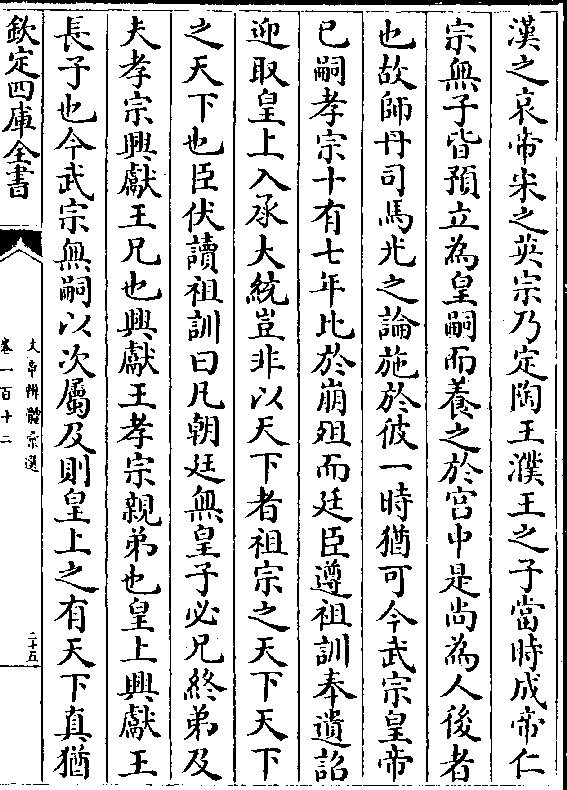 漢之哀帝宋之英宗乃定陶王濮王之子當時成帝仁
宗無子皆預立為皇嗣而養之於宫中是尚為人後者
也故師丹司馬光之論施於彼一時猶可今武宗皇帝
已嗣孝宗十有七年比於崩殂而廷臣遵祖訓奉遺詔
迎取皇上入承大統豈非以天下者祖宗之天下天下
之天下也臣伏讀祖訓曰凡朝廷無皇子必兄終弟及
夫孝宗興獻王兄也興獻王孝宗親弟也皇上興獻王
長子也今武宗無嗣以次屬及則皇上之有天下真猶
欽定四庫全書
文章辨體彙選
卷一百十二
二十五